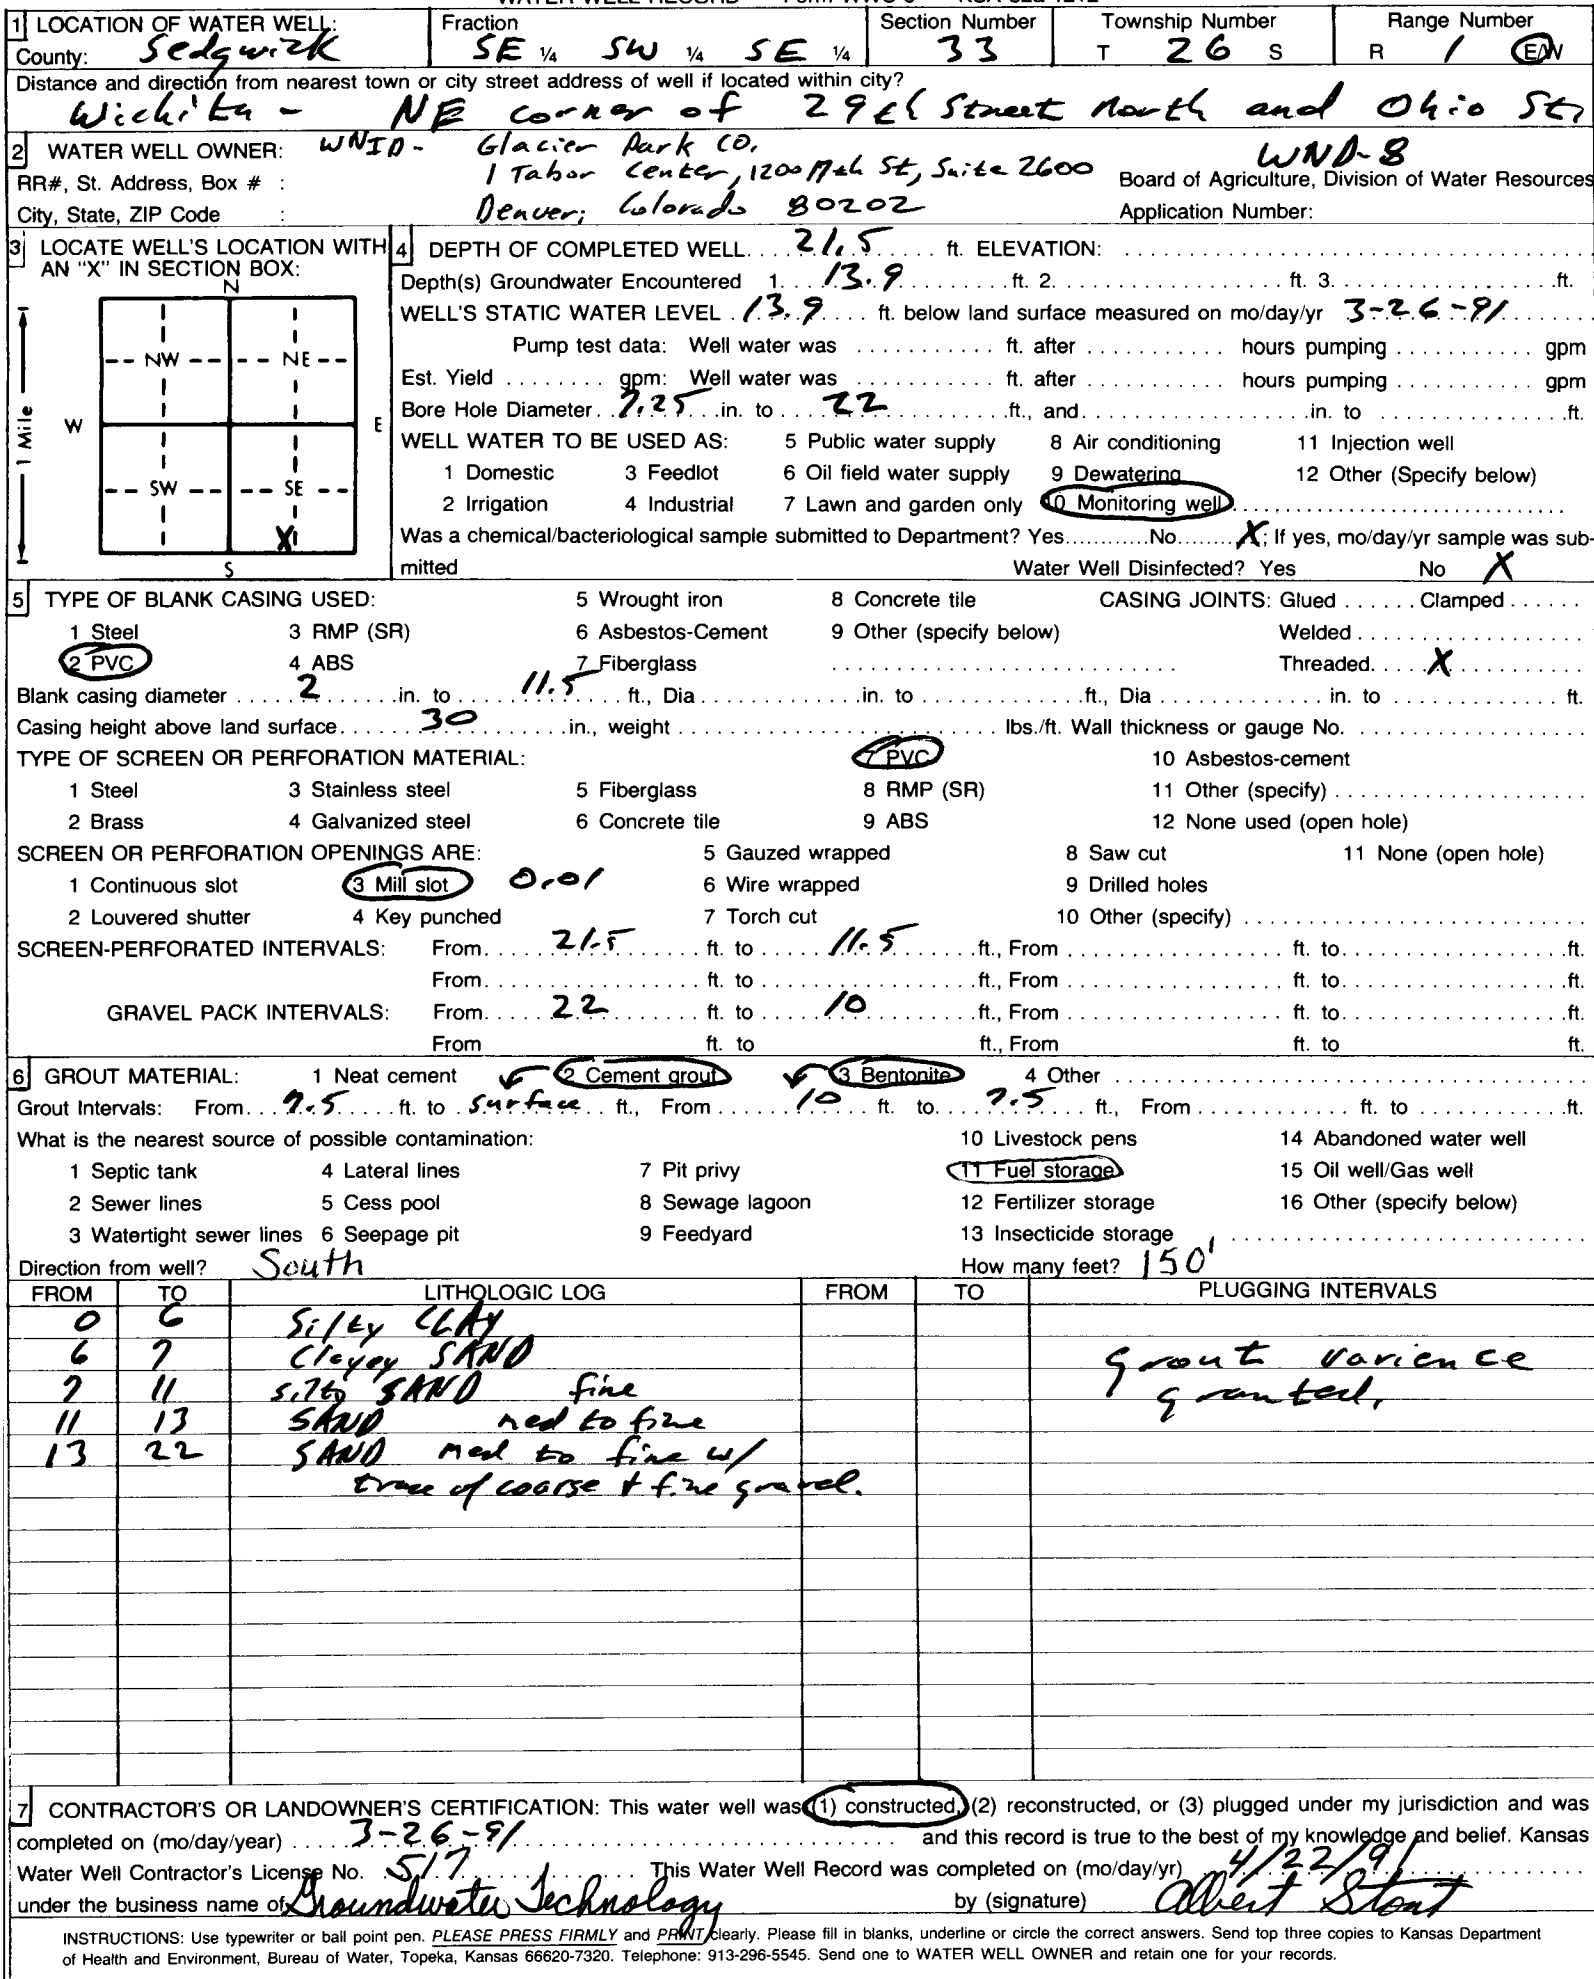 1 LOCATION OF WATER WELL: Fraction Section Number Township Number Range Number
County: Sedgwick SE ¼ SW ¼ SE ¼ 33 T 26 S R 1 E/W
Distance and direction from nearest town or city street address of well if located within city?
Wichita - NE corner of 29th Street North and Ohio St.
2 WATER WELL OWNER: WNID- Glacier Park CO. WND-8
RR#, St. Address, Box # : 1 Tabor Center, 1200 17th St, Suite 2600 Board of Agriculture, Division of Water Resources
City, State, ZIP Code : Denver, Colorado 80202 Application Number:
3 LOCATE WELL'S LOCATION WITH AN "X" IN SECTION BOX:
N
NW NE
W E
SW SE
X
S
1 Mile
4 DEPTH OF COMPLETED WELL 21.5 ft. ELEVATION:
Depth(s) Groundwater Encountered 1. 13.9 ft. 2. ft. 3. ft.
WELL'S STATIC WATER LEVEL 13.9 ft. below land surface measured on mo/day/yr 3-26-91
Pump test data: Well water was ft. after hours pumping gpm
Est. Yield gpm: Well water was ft. after hours pumping gpm
Bore Hole Diameter 7.25 in. to 22 ft., and in. to ft.
WELL WATER TO BE USED AS: 5 Public water supply 8 Air conditioning 11 Injection well
1 Domestic 3 Feedlot 6 Oil field water supply 9 Dewatering 12 Other (Specify below)
2 Irrigation 4 Industrial 7 Lawn and garden only 10 Monitoring well
Was a chemical/bacteriological sample submitted to Department? Yes No X; If yes, mo/day/yr sample was sub-
mitted Water Well Disinfected? Yes No X
5 TYPE OF BLANK CASING USED: 5 Wrought iron 8 Concrete tile CASING JOINTS: Glued Clamped
1 Steel 3 RMP (SR) 6 Asbestos-Cement 9 Other (specify below) Welded
2 PVC 4 ABS 7 Fiberglass Threaded X
Blank casing diameter 2 in. to 11.5 ft., Dia in. to ft., Dia in. to ft.
Casing height above land surface 30 in., weight lbs./ft. Wall thickness or gauge No.
TYPE OF SCREEN OR PERFORATION MATERIAL: 7 PVC 10 Asbestos-cement
1 Steel 3 Stainless steel 5 Fiberglass 8 RMP (SR) 11 Other (specify)
2 Brass 4 Galvanized steel 6 Concrete tile 9 ABS 12 None used (open hole)
SCREEN OR PERFORATION OPENINGS ARE: 5 Gauzed wrapped 8 Saw cut 11 None (open hole)
1 Continuous slot 3 Mill slot 0.01 6 Wire wrapped 9 Drilled holes
2 Louvered shutter 4 Key punched 7 Torch cut 10 Other (specify)
SCREEN-PERFORATED INTERVALS: From 21.5 ft. to 11.5 ft., From ft. to ft.
From ft. to ft., From ft. to ft.
GRAVEL PACK INTERVALS: From 22 ft. to 10 ft., From ft. to ft.
From ft. to ft., From ft. to ft.
6 GROUT MATERIAL: 1 Neat cement 2 Cement grout 3 Bentonite 4 Other
Grout Intervals: From 7.5 ft. to surface ft., From 10 ft. to 7.5 ft., From ft. to ft.
What is the nearest source of possible contamination: 10 Livestock pens 14 Abandoned water well
1 Septic tank 4 Lateral lines 7 Pit privy 11 Fuel storage 15 Oil well/Gas well
2 Sewer lines 5 Cess pool 8 Sewage lagoon 12 Fertilizer storage 16 Other (specify below)
3 Watertight sewer lines 6 Seepage pit 9 Feedyard 13 Insecticide storage
Direction from well? South How many feet? 150'
FROM TO LITHOLOGIC LOG FROM TO PLUGGING INTERVALS
0 6 Silty CLAY
6 7 Clayey SAND grout varience
7 11 silty SAND fine granted.
11 13 SAND med to fine
13 22 SAND med to fine w/
trace of coarse + fine gravel.
7 CONTRACTOR'S OR LANDOWNER'S CERTIFICATION: This water well was (1) constructed, (2) reconstructed, or (3) plugged under my jurisdiction and was
completed on (mo/day/year) 3-26-91 and this record is true to the best of my knowledge and belief. Kansas
Water Well Contractor's License No. 517 This Water Well Record was completed on (mo/day/yr) 4/22/91
under the business name of Groundwater Technology by (signature) Albert Stout
INSTRUCTIONS: Use typewriter or ball point pen. PLEASE PRESS FIRMLY and PRINT clearly. Please fill in blanks, underline or circle the correct answers. Send top three copies to Kansas Department
of Health and Environment, Bureau of Water, Topeka, Kansas 66620-7320. Telephone: 913-296-5545. Send one to WATER WELL OWNER and retain one for your records.